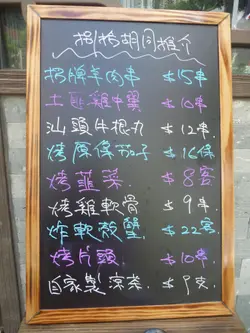 胡同推介
招牌羊肉串 $15串
土匪雞中翼 $10串
汕頭牛根丸 $12串
烤原條茄子 $16條
烤韮菜 $8客
烤雞軟骨 $9串
炸軟殼蟹 $22客
烤片頭 $10串
自家製涼茶 $9支